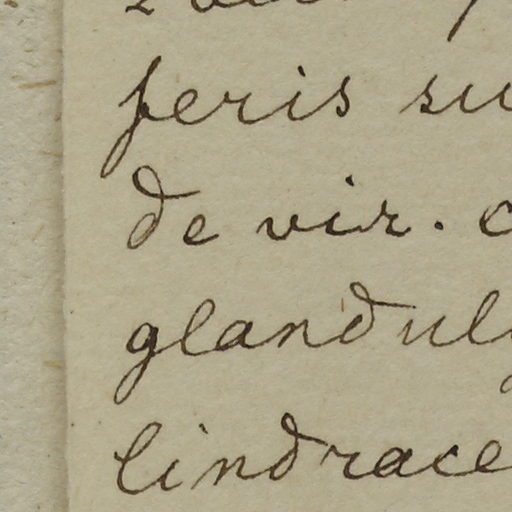 feris su
de vir. c
glandul
lindrace